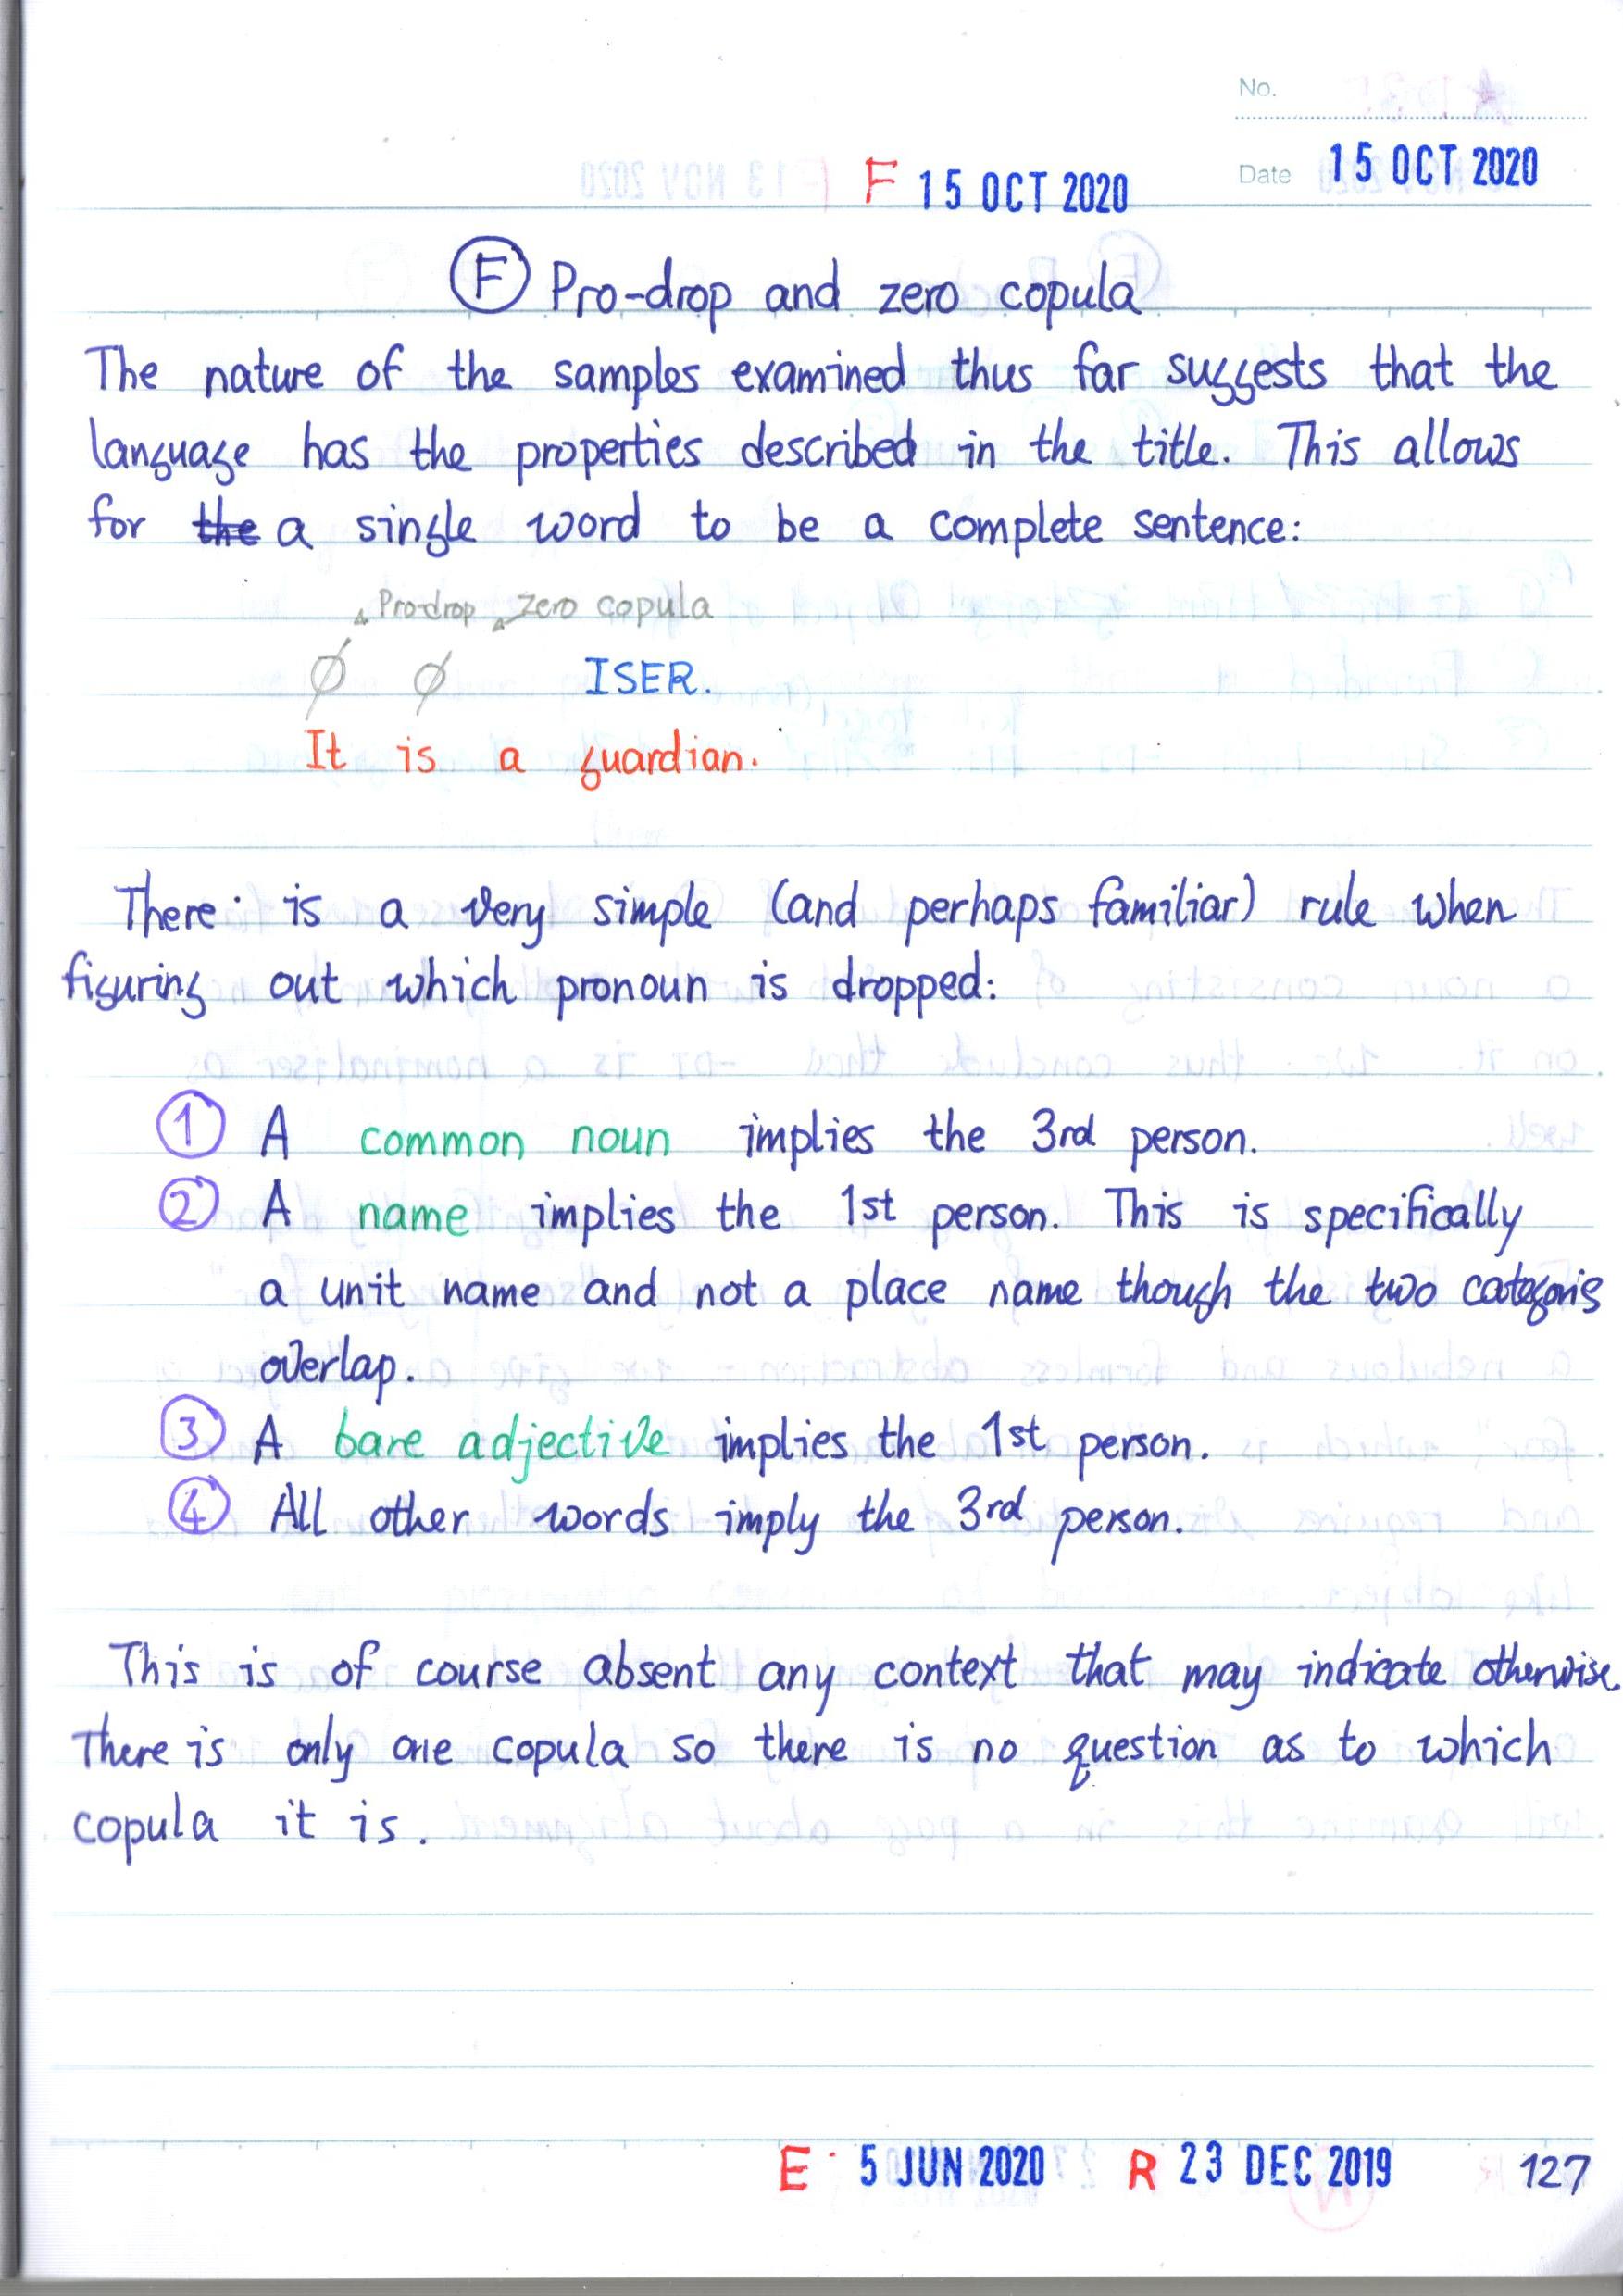 No.
Date 15 OCT 2020
F 15 OCT 2020
F Pro-drop and zero copula
The nature of the samples examined thus far suggests that the
language has the properties described in the title. This allows
for the a single word to be a complete sentence:
Pro-drop zero copula
Ø Ø ISER.
It is a guardian.
There is a very simple (and perhaps familiar) rule when
figuring out which pronoun is dropped:
1 A common noun implies the 3rd person.
2 A name implies the 1st person. This is specifically
a unit name and not a place name though the two categoris
overlap.
3 A bare adjective implies the 1st person.
4 All other words imply the 3rd person.
This is of course absent any context that may indicate otherwise.
There is only one copula so there is no question as to which
copula it is.
E 5 JUN 2020 R 23 DEC 2019 127